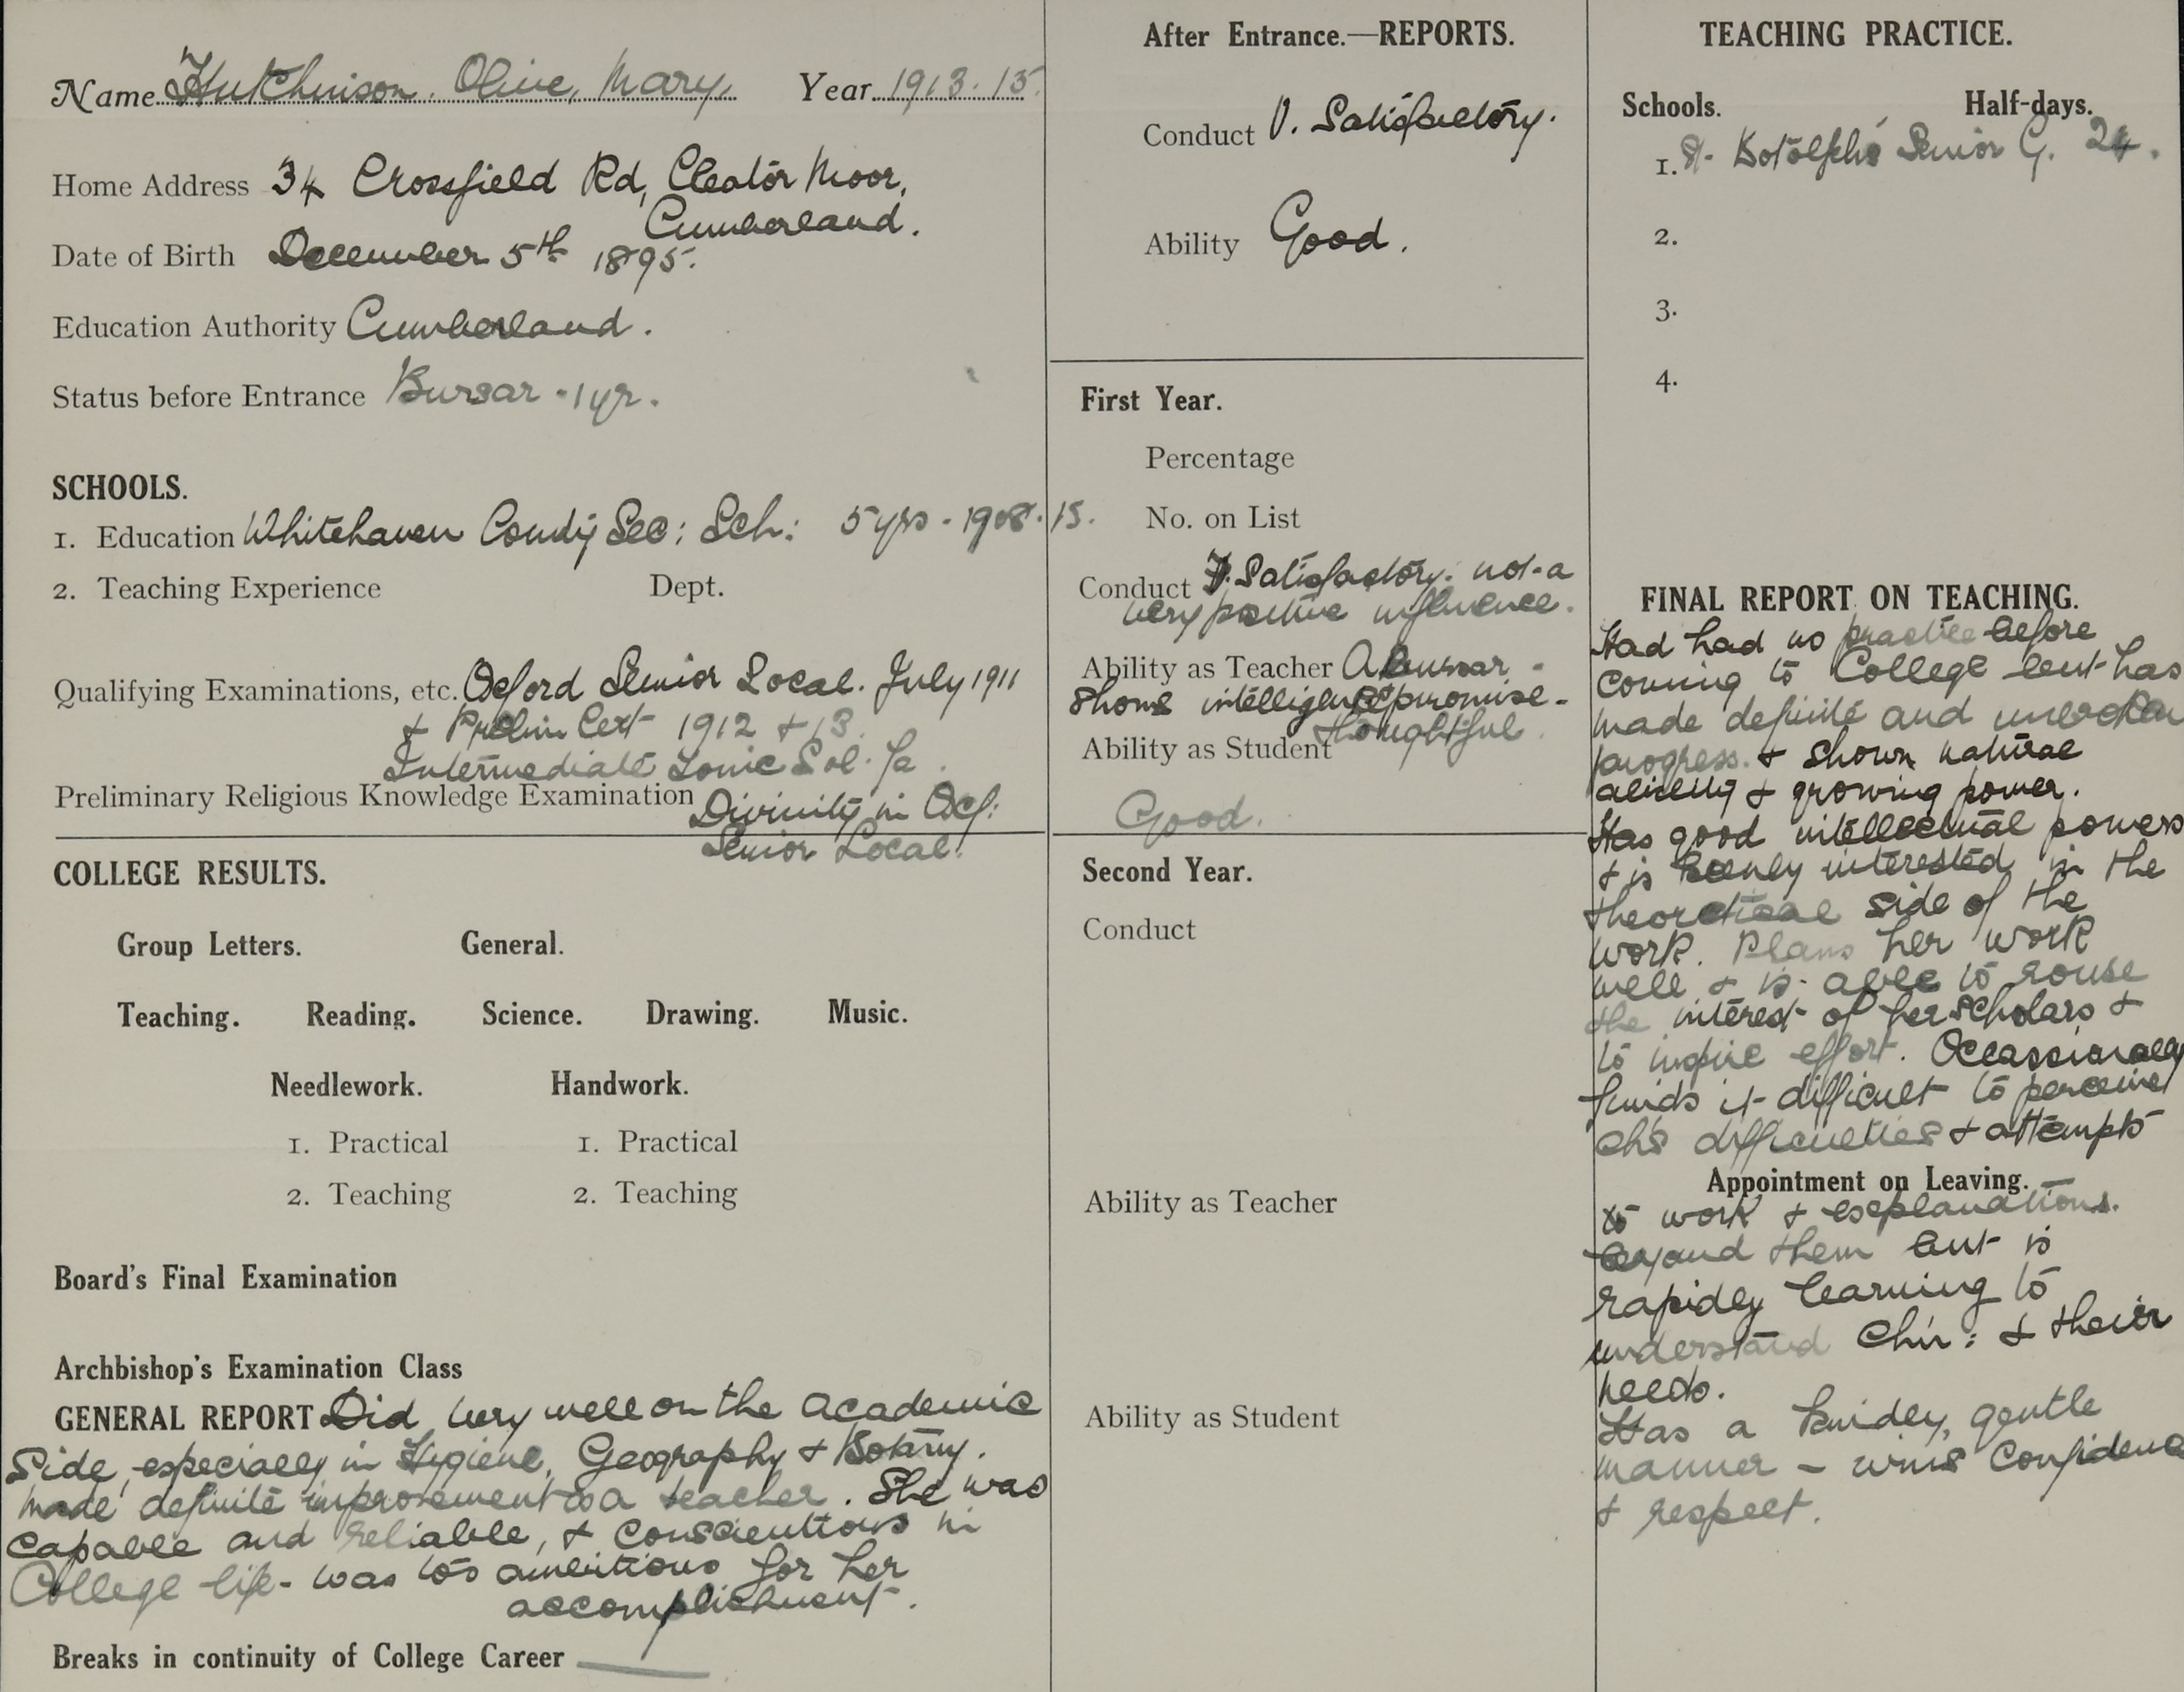 Name Hutchinson. Olive, Mary, Year 1913.15.
Home Address 34 Crossfield Rd, Cleator Moor,
Cumberland.
Date of Birth December 5th 1895.
Education Authority Cumberland.
Status before Entrance Bursar - 1 yr.
SCHOOLS.
1. Education Whitehaven County Sec: Sch: 5 yrs - 1908.13.
2. Teaching Experience Dept.
Qualifying Examinations, etc. Oxford Senior Local. July 1911
& Prelim Cert 1912 & 13.
Intermediate Tonic Sol. Fa.
Preliminary Religious Knowledge Examination Divinity in Oxf:
Senior Local.
COLLEGE RESULTS.
Group Letters. General.
Teaching. Reading. Science. Drawing. Music.
Needlework. Handwork.
1. Practical 1. Practical
2. Teaching 2. Teaching
Board's Final Examination
Archbishop's Examination Class
GENERAL REPORT Did very well on the academic
side, especially in Hygiene, Geography & Botany.
Made definite improvement as a teacher. She was
capable and reliable, & conscientious in
College life - was too ambitious for her
accomplishment.
Breaks in continuity of College Career —
After Entrance.—REPORTS.
Conduct V. Satisfactory.
Ability Good.
First Year.
Percentage
No. on List
Conduct Satisfactory. not a
very positive influence.
Ability as Teacher A bursar -
shows intelligence & promise -
thoughtful.
Ability as Student
Good.
Second Year.
Conduct
Ability as Teacher
Ability as Student
TEACHING PRACTICE.
Schools. Half-days.
1. St. Botolph's Senior G. 24.
2.
3.
4.
FINAL REPORT ON TEACHING.
Had had no practice before
coming to College but has
made definite and unbroken
progress. & shown natural
ability & growing power.
Has good intellectual powers
& is keenly interested in the
theoretical side of the
work. Plans her work
well & is able to rouse
the interest of her scholars &
to inspire effort. Occassionally
finds it difficult to perceive
ch's difficulties & attempts
Appointment on Leaving.
to work & explanations.
beyond them but is
rapidly learning to
understand Chn: & their
needs.
Has a kindly, gentle
manner - wins confidence
& respect.